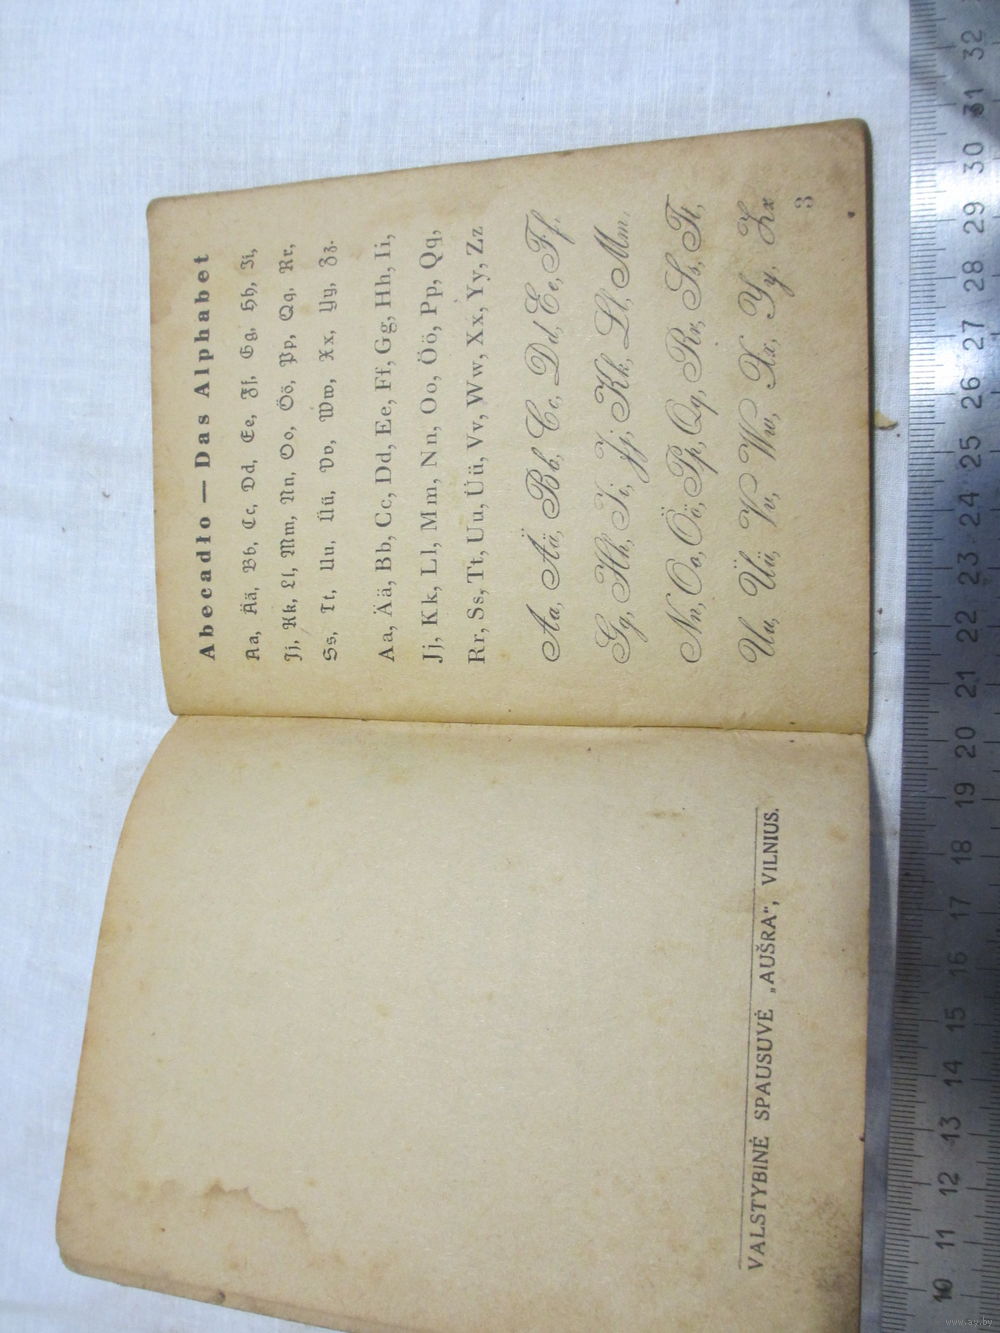 VALSTYBINĖ SPAUSUVĖ „AUŠRA“, VILNIUS.
Abecadło — Das Alphabet
Aa, Ää, Bb, Cc, Dd, Ee, Ff, Gg, Hh, Ii,
Jj, Kk, Ll, Mm, Nn, Oo, Öö, Pp, Qq, Rr,
Ss, Tt, Uu, Üü, Vv, Ww, Xx, Yy, Zz.
Aa, Ää, Bb, Cc, Dd, Ee, Ff, Gg, Hh, Ii,
Jj, Kk, Ll, Mm, Nn, Oo, Öö, Pp, Qq,
Rr, Ss, Tt, Uu, Üü, Vv, Ww, Xx, Yy, Zz
Aa, Ää, Bb, Cc, Dd, Ee, Ff,
Gg, Hh, Ii, Jj, Kk, Ll, Mm,
Nn, Oo, Öö, Pp, Qq, Rr, Ss, Tt,
Uu, Üü, Vv, Ww, Xx, Yy, Zz
3
10 11 12 13 14 15 16 17 18 19 20 21 22 23 24 25 26 27 28 29 30 31 32
www.ay.by